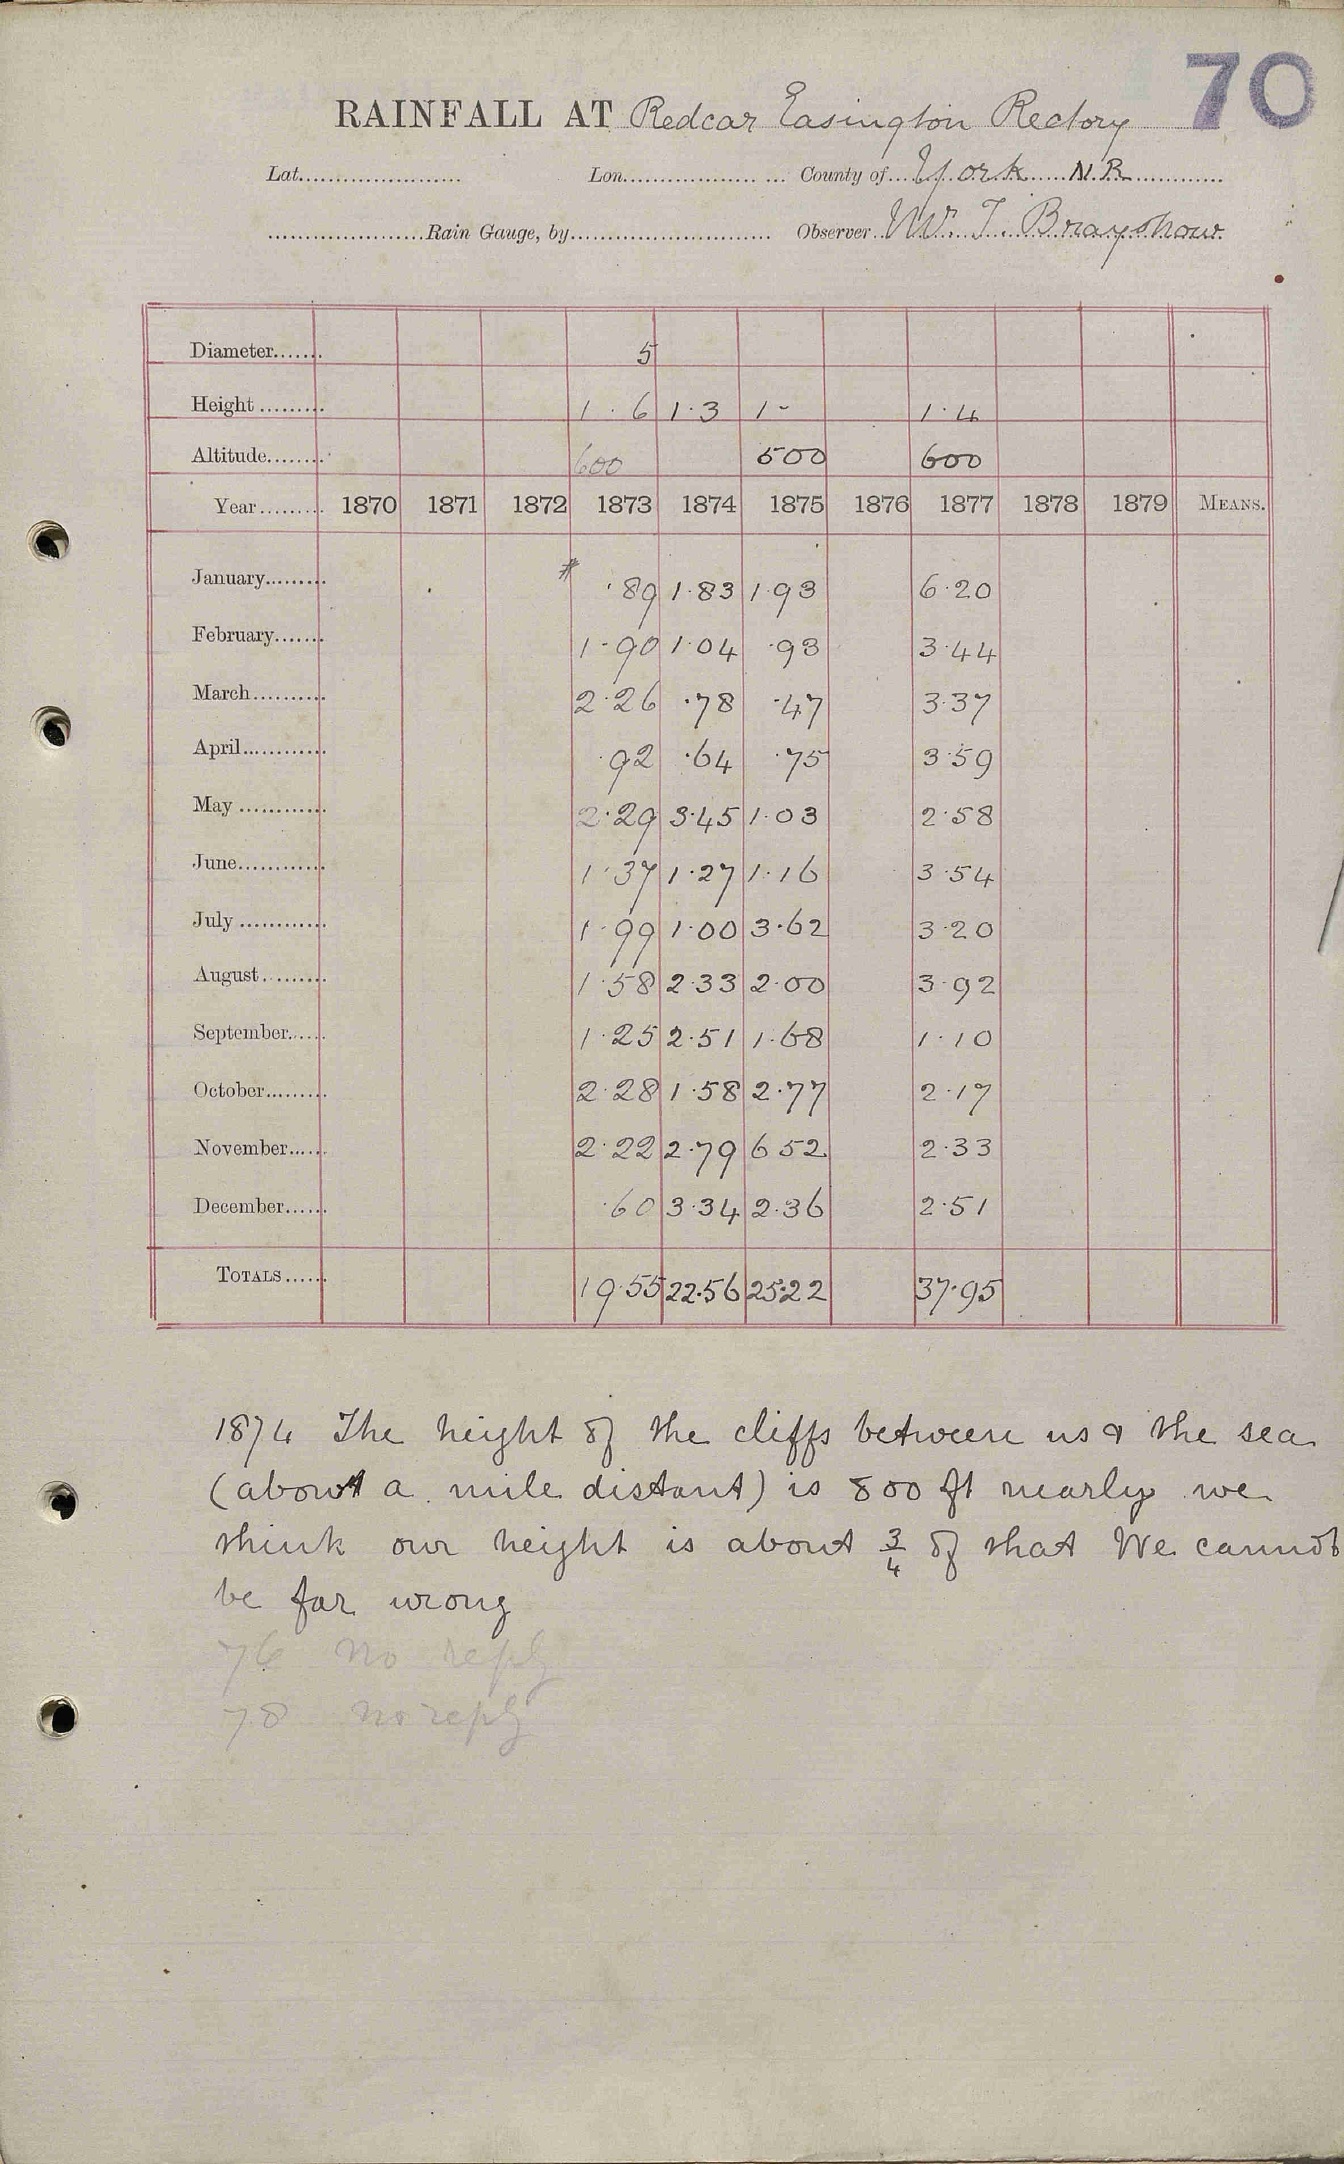 70
RAINFALL AT Redcar Easington Rectory
Lat...................... Lon...................... County of York N.R.
......................Rain Gauge, by........................... Observer W. T. Brayshaw
Diameter....... 5
Height ......... 1.6 1.3 1- 1.4
Altitude........ 600 500 600
Year......... 1870 1871 1872 1873 1874 1875 1876 1877 1878 1879 MEANS.
January......... # .89 1.83 1.93 6.20
February....... 1.90 1.04 .93 3.44
March.......... 2.26 .78 .47 3.37
April............ .92 .64 .75 3.59
May ............ 2.29 3.45 1.03 2.58
June............ 1.37 1.27 1.16 3.54
July ............ 1.99 1.00 3.62 3.20
August......... 1.58 2.33 2.00 3.92
September...... 1.25 2.51 1.68 1.10
October......... 2.28 1.58 2.77 2.17
November...... 2.22 2.79 6 52 2.33
December...... .60 3.34 2.36 2.51
TOTALS...... 19.55 22.56 25.22 37.95
1874 The height of the cliffs between us & the sea
(about a mile distant) is 800 ft nearly we
think our height is about 3/4 of that We cannot
be far wrong
76 no reply
78 no reply